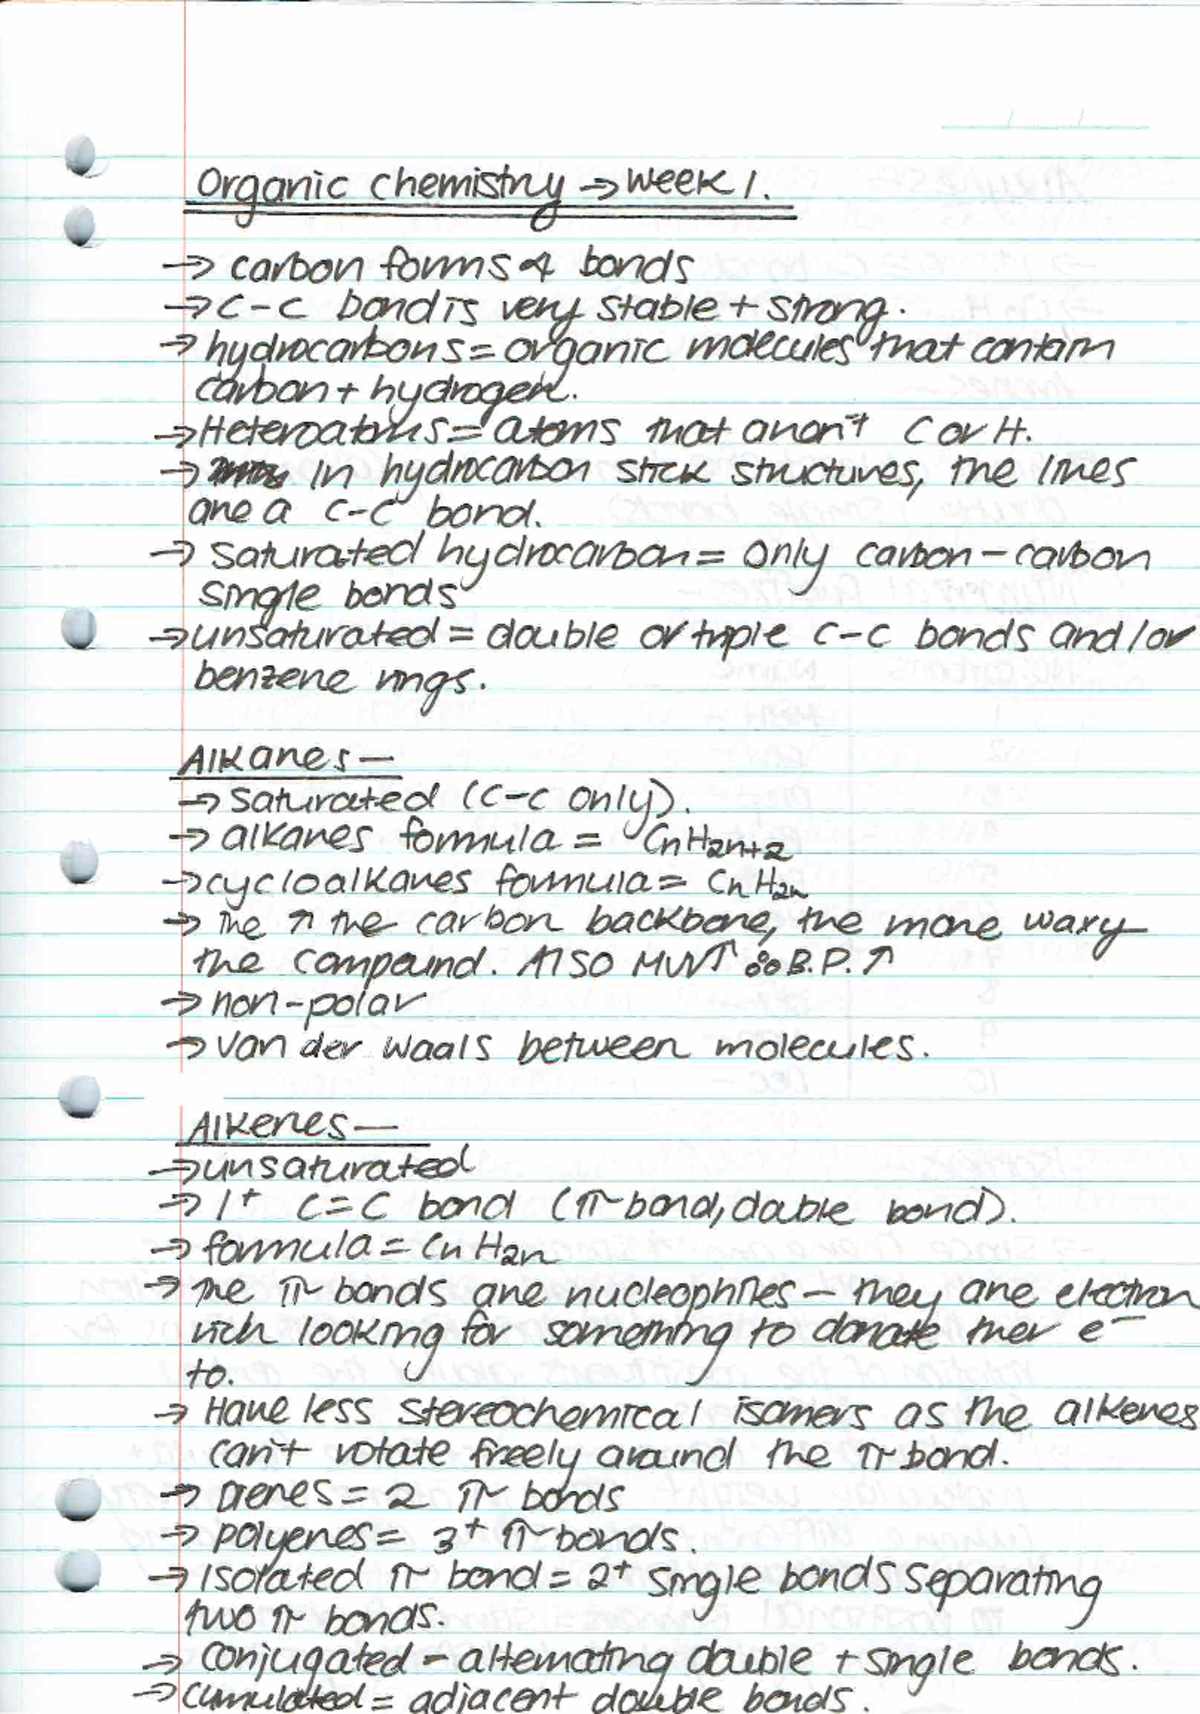 Organic chemistry → week 1.
→ carbon forms 4 bonds
→ C-C bond is very stable + strong.
→ hydrocarbons = organic molecules that contain
carbon + hydrogen.
→ Heteroatoms = atoms that aren't C or H.
→ In hydrocarbon stick structures, the lines
are a C-C bond.
→ saturated hydrocarbon = only carbon-carbon
single bonds
→ unsaturated = double or triple C-C bonds and/or
benzene rings.
Alkanes —
→ saturated (C-C only).
→ alkanes formula = CnH2n+2
→ cycloalkanes formula = CnH2n
→ The ↑ the carbon backbone, the more waxy
the compound. Also MW↑ ∴ B.P.↑
→ non-polar
→ van der waals between molecules.
Alkenes —
→ unsaturated
→ 1+ C=C bond (π bond, double bond).
→ formula = CnH2n
→ The π bonds are nucleophiles - they are electron
rich looking for something to donate their e⁻
to.
→ Have less stereochemical isomers as the alkenes
can't rotate freely around the π bond.
→ Dienes = 2 π bonds
→ polyenes = 3+ π bonds.
→ Isolated π bond = 2+ single bonds separating
two π bonds.
→ conjugated - alternating double + single bonds.
→ cumulated = adjacent double bonds.